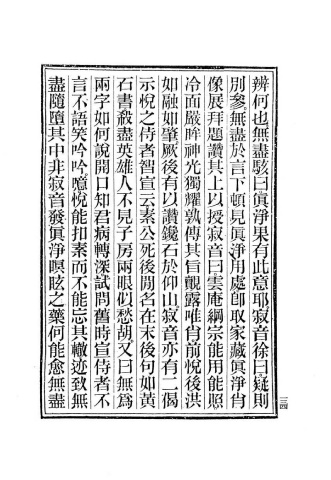 辨何也無盡駭曰眞淨果有此意耶寂音徐曰疑則
別參無盡於言下頓見眞淨用處卽取家藏眞淨肖
像展拜題讚其上以授寂音曰雲庵綱宗能用能照
冷面嚴眸神光獨耀孰傳其旨覿露唯肖前悅後洪
如融如肇厥後有以讚鑱石於仰山寂音亦有二偈
示悅之侍者智宣云素公死後閒名在末後句如黃
石書殺盡英雄人不見子房兩眼似愁胡又曰無爲
兩字如何說開口知君病轉深試問舊時宣侍者不
言不語笑吟吟噫悅能扣素而不能忘其轍迹致無
盡隨墮其中非寂音發眞淨瞑眩之藥何能愈無盡
三四